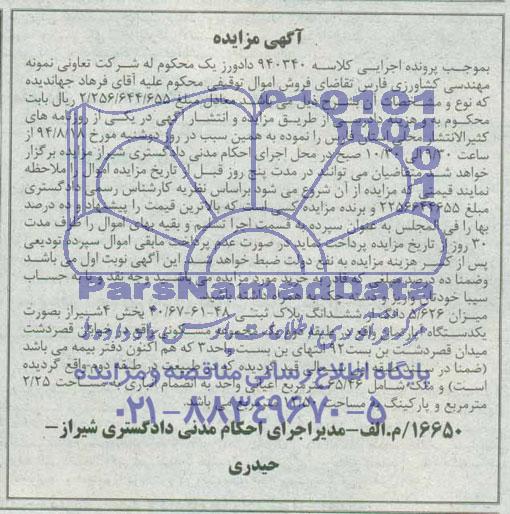 آگهی مزایده
بموجب پرونده اجرایی کلاسه ۹۴۰۳۴۰ دادورز یک محکوم له شرکت تعاونی نمونه
مهندسی کشاورزی فارس تقاضای فروش اموال توقیفی محکوم علیه آقای فرهاد جهاندیده
که نوع و مشخصات آن بشرح ذیل می باشد معادل مبلغ ۲/۲۵۶/۶۴۴/۶۵۵ ریال بابت
محکوم به و هزینه از طریق مزایده و انتشار آگهی در یکی از روزنامه های
کثیرالانتشار محلی فارس را نموده به همین سبب در روز دوشنبه مورخ ۹۴/۸/۱۸ از
ساعت ۹/۳۰ الی ۱۰/۳۰ صبح در محل اجرای احکام مدنی دادگستری شیراز مزایده برگزار
خواهد شد متقاضیان می توانند در مدت پنج روز قبل از تاریخ مزایده اموال را ملاحظه
نمایند قیمتی که مزایده از آن شروع می شود براساس نظریه کارشناس رسمی دادگستری
مبلغ ۲۲۵۶۶۴۴۶۵۵ و برنده مزایده کسی است که بالاترین قیمت را پیشنهاد و ده درصد
بها را فی المجلس به عنوان سپرده به قسمت اجرا تسلیم و بقیه بهای اموال را ظرف مدت
۳۰ روز از تاریخ مزایده پرداخت نماید در صورت عدم پرداخت مابقی اموال سپرده تودیعی
پس از کسر هزینه مزایده به نفع دولت ضبط خواهد شد این آگهی نوبت اول می باشد
وضمنا ده درصد مبلغی که قادر به خرید مورد مزایده می باشید وجه نقد و یا به حساب
سیبا خودتان واریز و دسته چک به همراه داشته باشید
میزان ۵/۶۲۶ دانگ از ششدانگ پلاک ثبتی ۴۰/۶۷-۶۱-۴۸ بخش ۴شیراز بصورت
یکدستگاه آپارتمان واقع در طبقه دوم یک مجموعه مسکونی واقع در خیابان قصردشت
میدان قصردشت بن بست۹۲ انتهای بن بست واحد۳ که هم اکنون دفتر بیمه می باشد
(ضمنا در قید گردیده که در طبقه دو واقع گردیده
است) و ملک شامل ۶۵/۴۶ مترمربع اعیانی واحد به انضمام انباری به مساحت ۲/۲۵
مترمربع و پارکینگ به مساحت مترمربع می باشد.
۱۶۶۵۰/م.الف-مدیراجرای احکام مدنی دادگستری شیراز-
حیدری
ParsNamadData
پایگاه اطلاع رسانی مناقصه و مزایده
۰۲۱-۸۸۳۴۹۶۷۰-۵